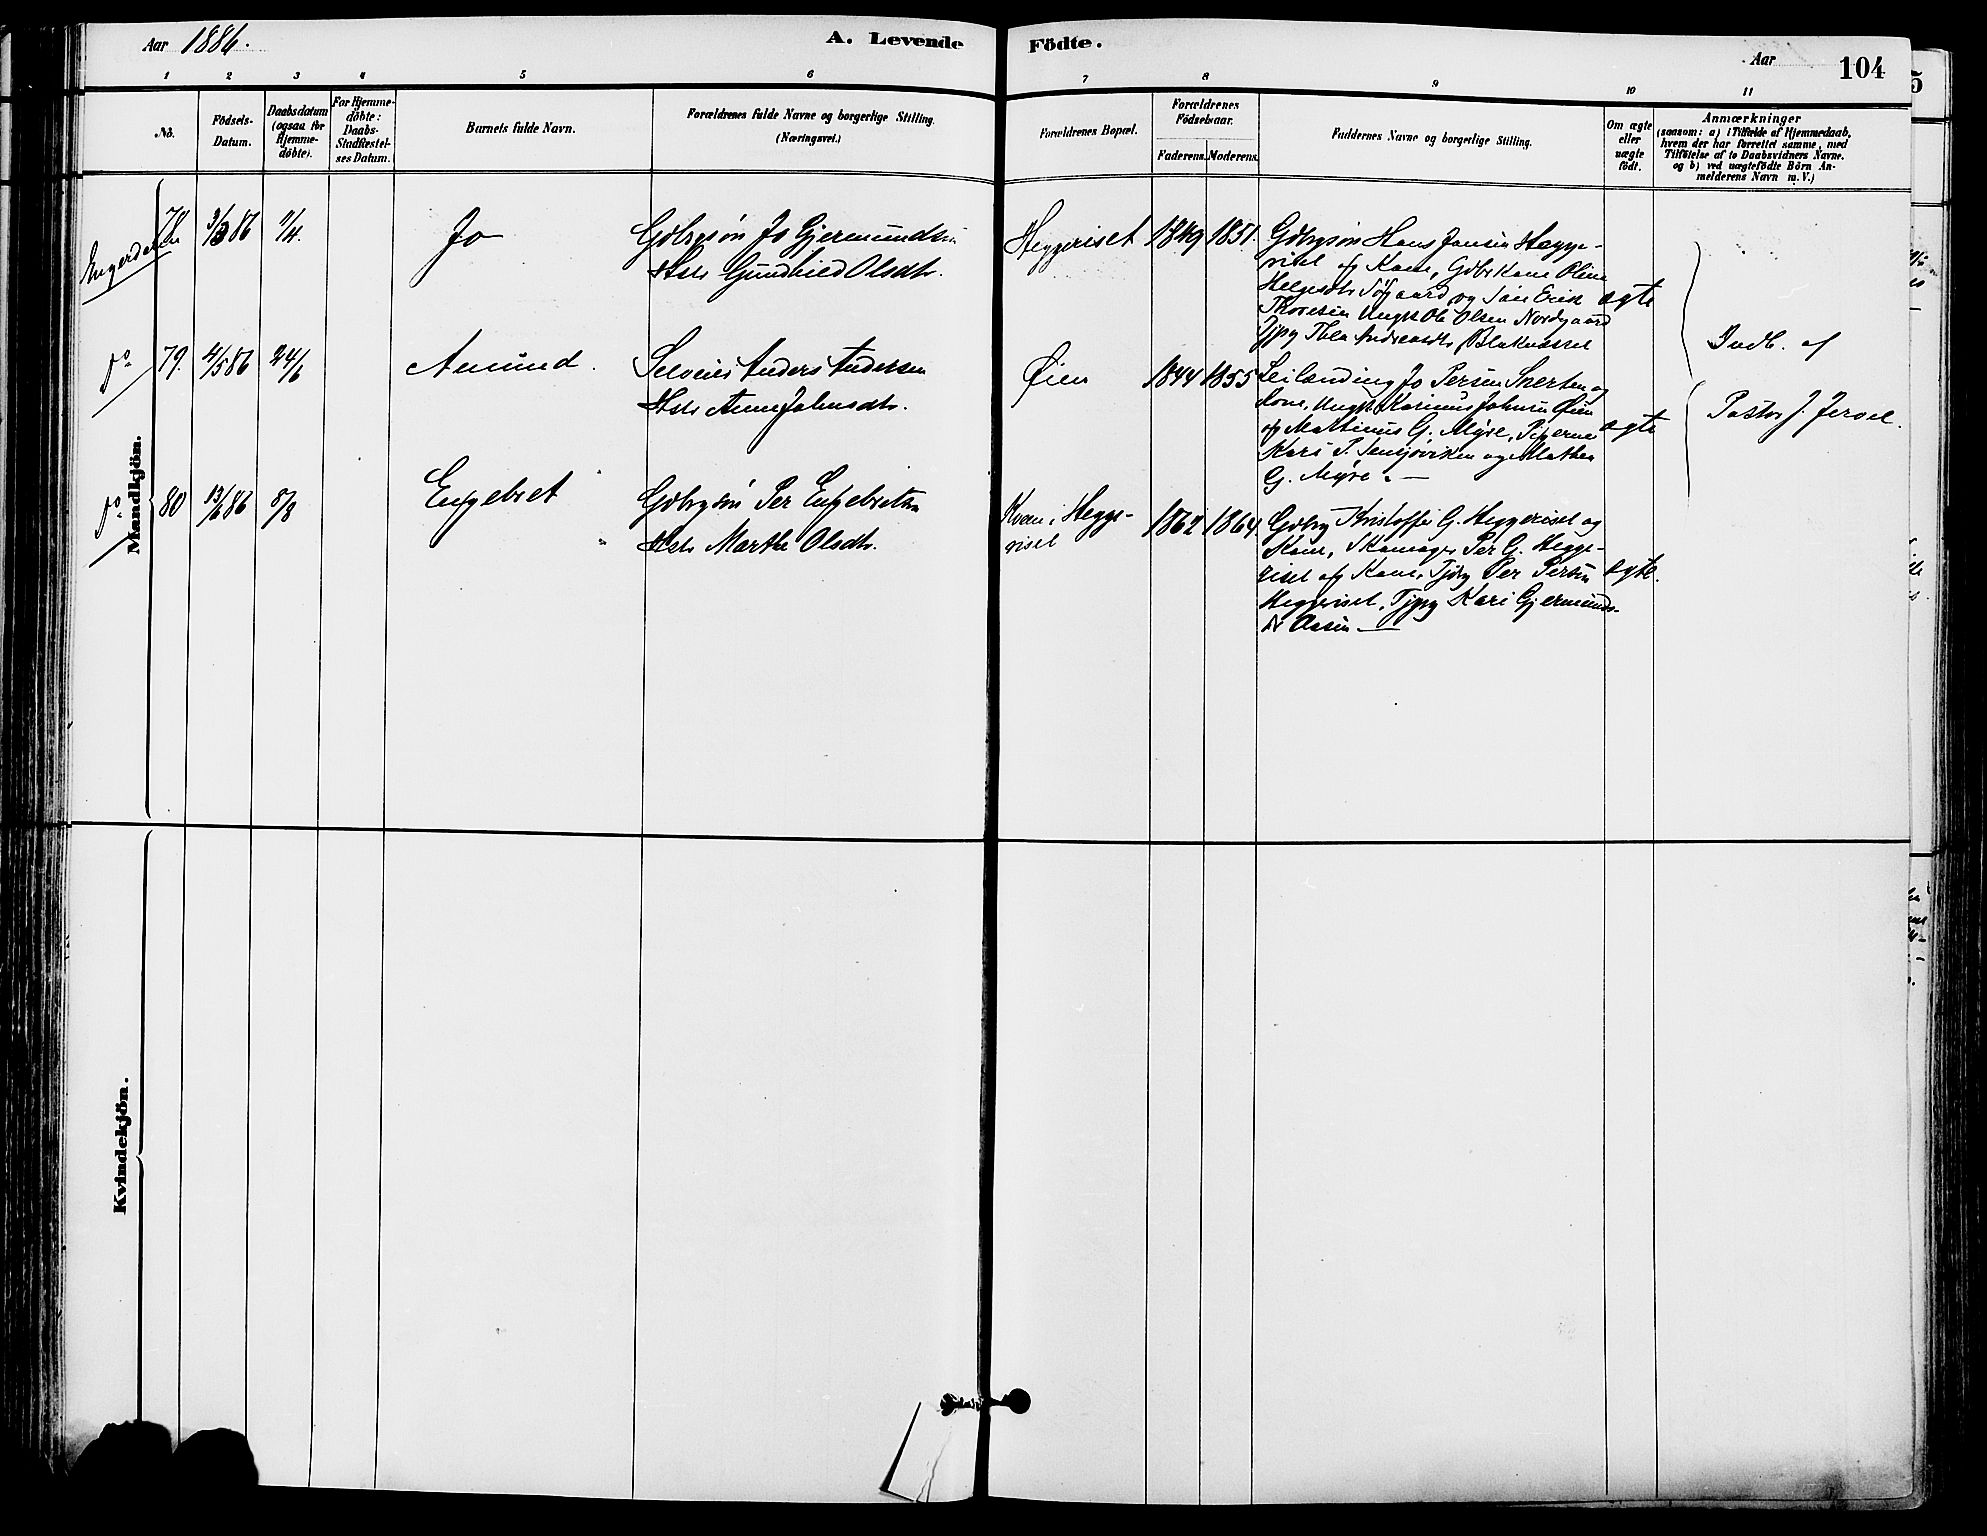 Aar 1886. A. Levende Födte. Aar 104
1 2 3 4 5 6 7 8 9 10 11
No. Födsels-Datum. Daabsdatum (ogsaa for Hjemme-döbte). For Hjemme-döbte: Daabs-Stadfæstel-ses Datum. Barnets fulde Navn. Forældrenes fulde Navne og borgerlige Stilling. (Næringsvei.) Forældrenes Bopæl. Forældrenes Födselsaar. Faderens. Moderens. Faddernes Navne og borgerlige Stilling. Om ægte eller uægte födt. Anmærkninger (saasom: a) i Tilfælde af Hjemmedaab, hvem der har forrettet samme, med Tilföielse af to Daabsvidners Navne. og b) ved uægtefödte Börn An-melderens Navn m. V.)
Mandkjön.
Engerdalen 78 3/3 86 1/4. Jo
Gdbrgsön Jo Gjermundsen
Hstr Gunhild Olsdtr.
Heggeriset 1849 1851.
Gdbrgsön Hans Jonsen Hægge-
risel og Kone, Gdbr Kone Oline
Helgesdtr Söfgaard og Erik ægte
Thoresen Ungk Ole Olsen Nordgaard
Tjpg Andreasdtr
Do 79. 4/5 86 24/6 Amund.
Selveier Anders Andersen
Hstr Anne Johnsdtr.
Øien 1844 1855
Leilænding Jo Persen Snerten og
Kone, Ungk Karinus Johnsen Øien
og Martinus G. Myre, Pigerne ægte
Kari P. Sensjøviken og Mathea
G. Myre. —
Indb. af
Pastor J. Jervel.
Do 80 13/6 86 8/8 Engebret
Gdbrgsön Per Engebretsen
Hstr Marthe Olsdtr.
Kvan i Hegge-
risel 1862 1864.
Gdbrg Kristoffer G. Heggerisel og
Kone, Skomager Per G. Hegge-
risel og Kone, Tjdrg Per Persen ægte.
Heggerisel, Tjpg Kari Gjermunds-
dtr Aasen —
Kvindekjön.